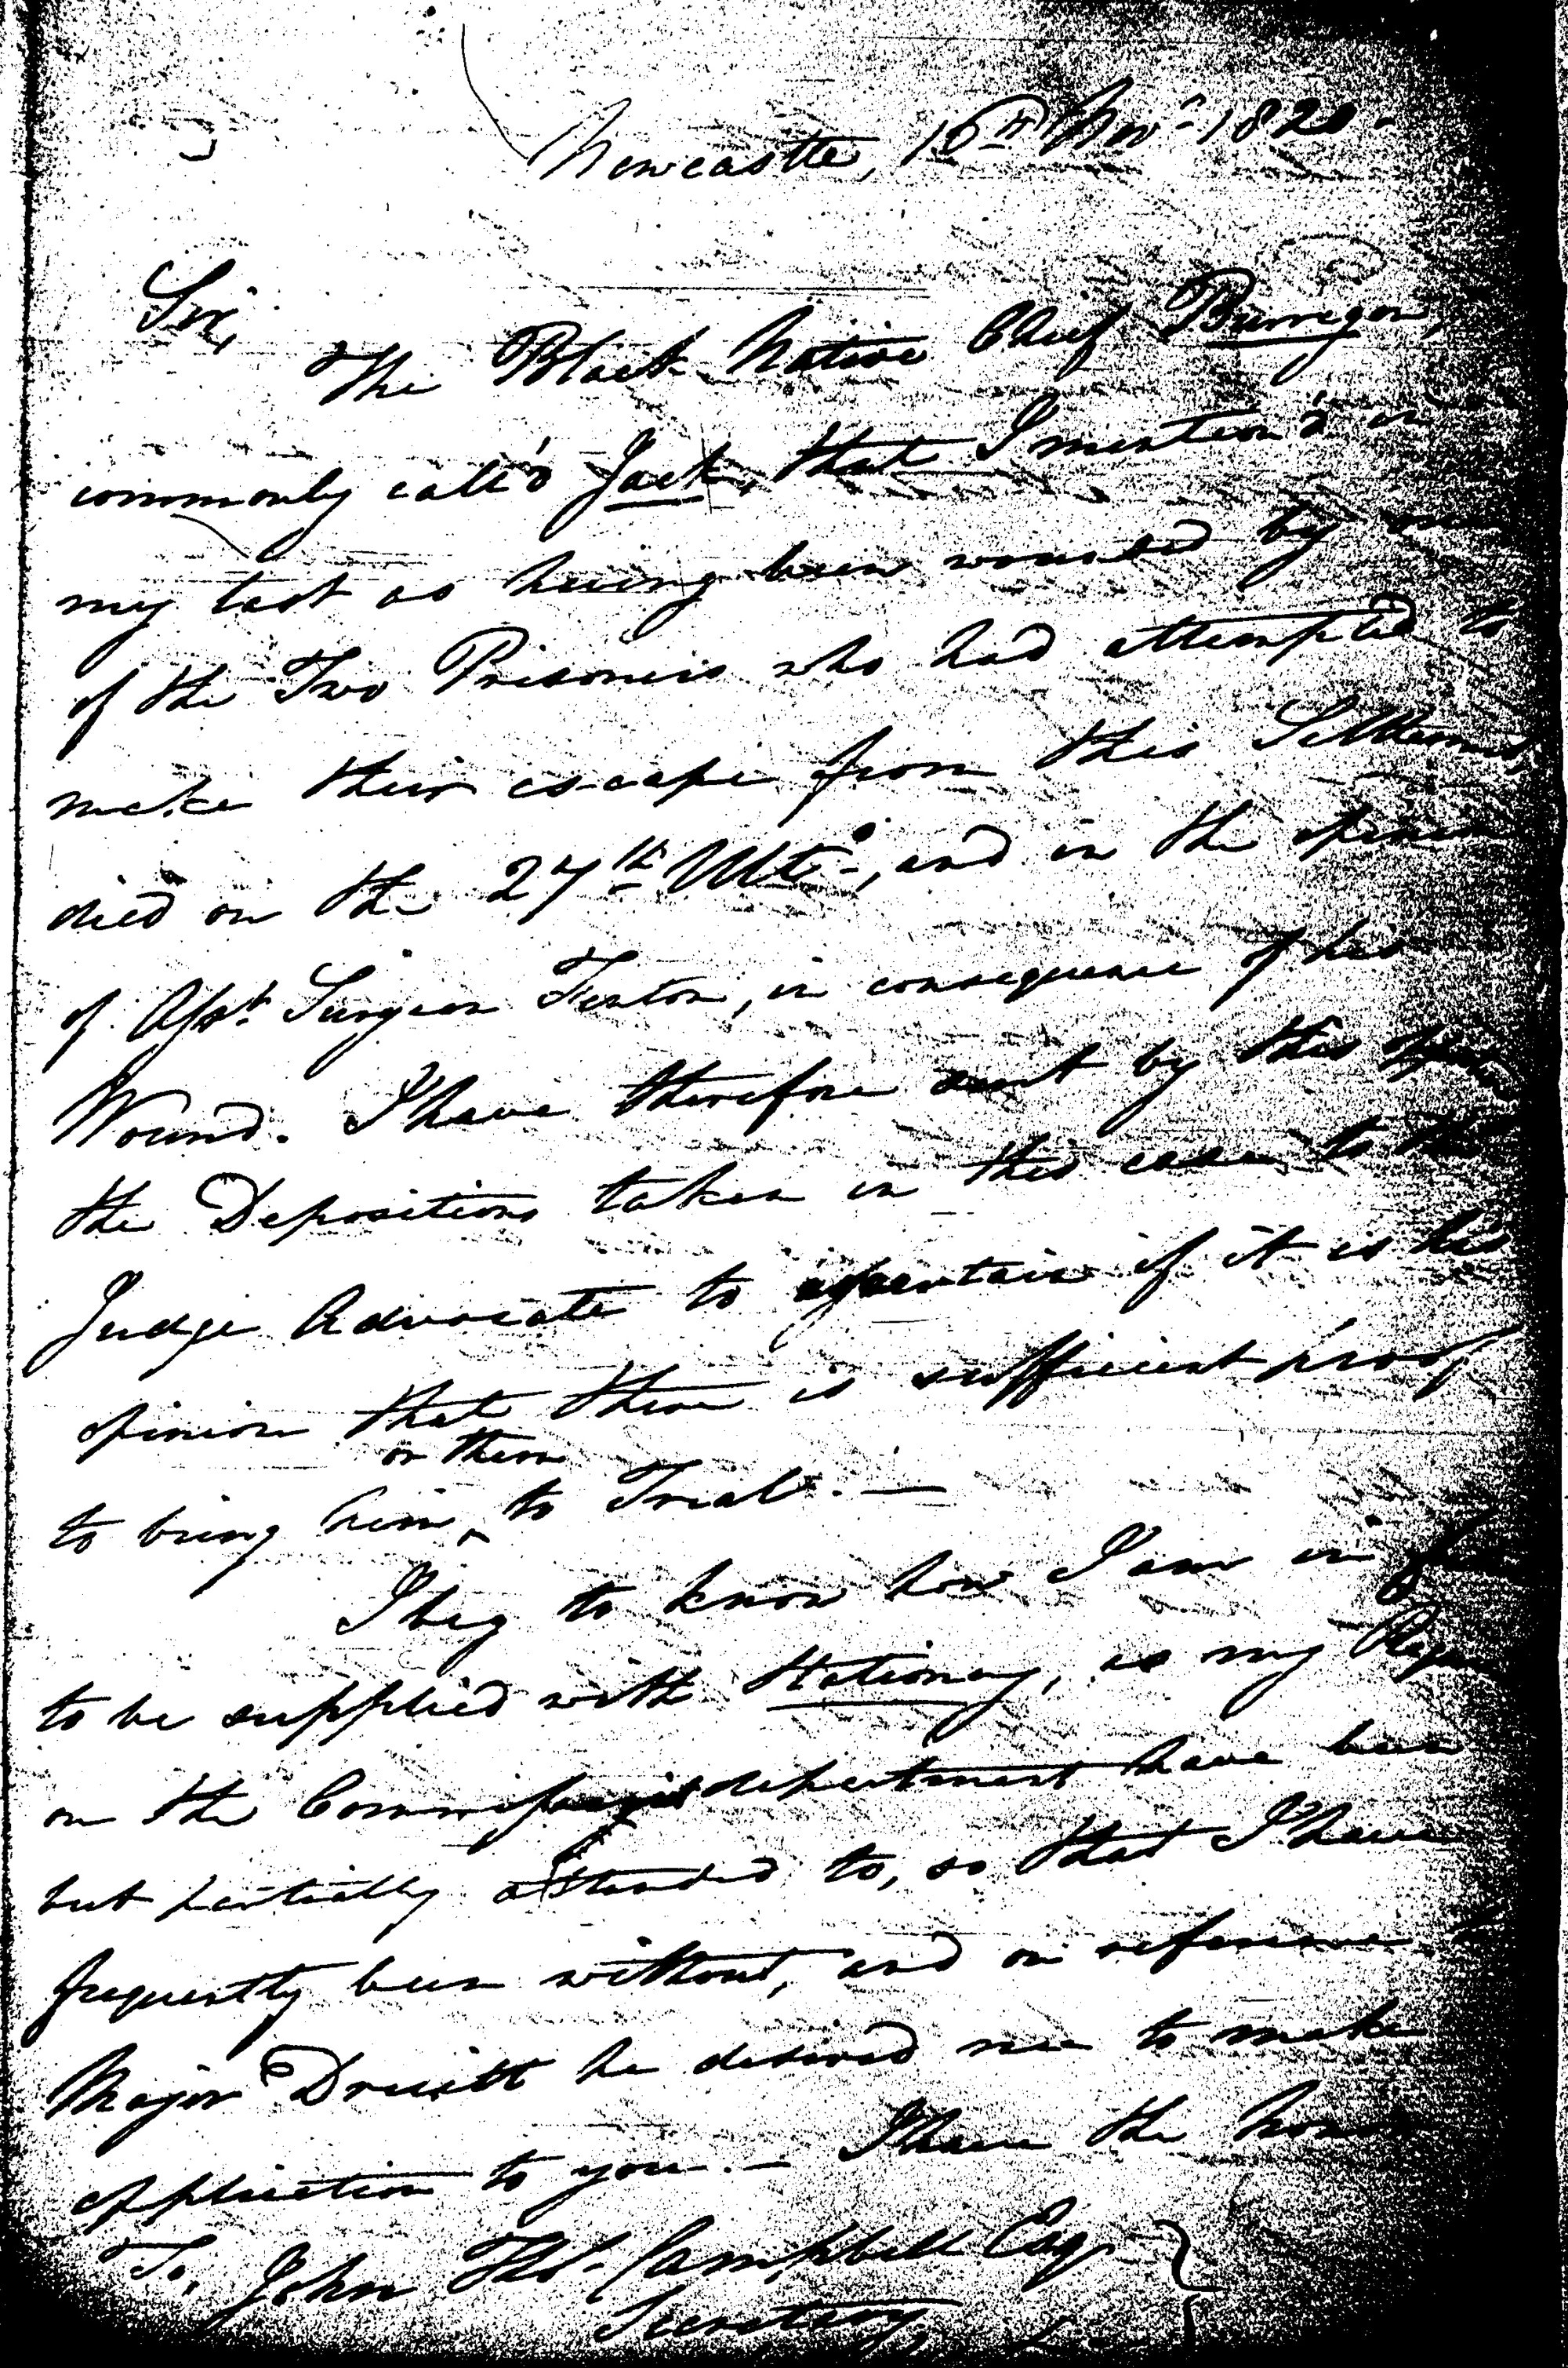 Newcastle, 16th Novr 1820.
Sir,
The Black Native Chief Burrigon,
commonly call'd Jack, that I mention'd in
my last as having been wounded by one
of the Two Prisoners who had attempted to
make their escape from this Settlement,
died on the 27th Ulto., and in the opinion
of Asst. Surgeon Fenton, in consequence of his
Wound. I have therefore sent by this
the Depositions taken in this case to the
Judge Advocate to ascertain if it is his
opinion that there is sufficient proof
to bring him or them to Trial. —
I beg to know how I am in
to be supplied with Stationery, as my
on the Commissariat department have been
but partially attended to, so that I have
frequently been without, and on reference
Major Druitt he desired me to make
application to you. — I have the honor
To, John Thos. Campbell Esqr
Secretary,